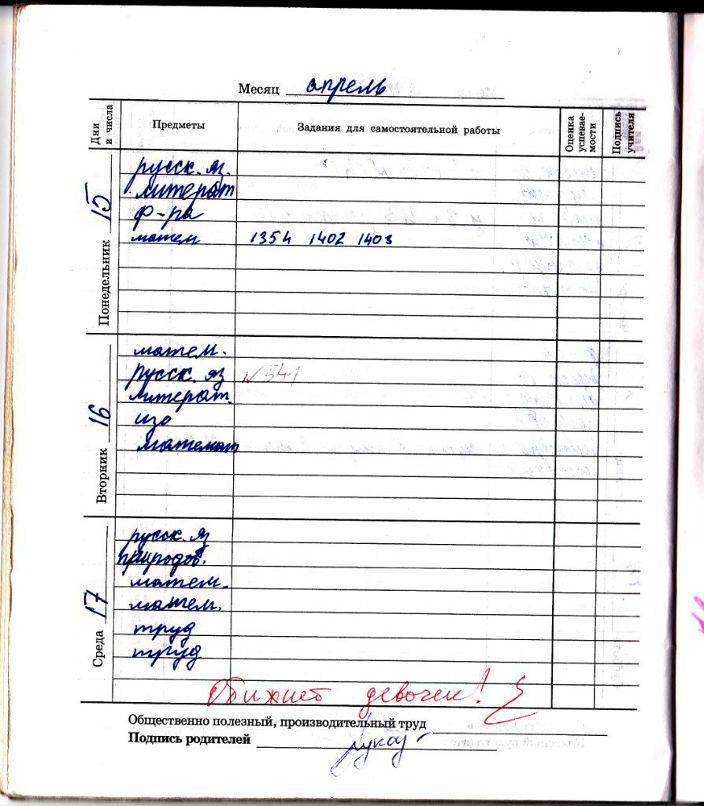 Месяц апрель
Дни и числа
Предметы
Задания для самостоятельной работы
Оценка успевае-мости
Подпись учителя
Понедельник 15
русск. яз.
литерат
ф-ра
матем 1354 1402 1403
Вторник 16
матем.
русск. яз №541
литерат.
изо
математ
Среда 17
русск. яз
природов.
матем.
матем.
труд
труд
Обижает девочек!
Общественно полезный, производительный труд
Подпись родителей